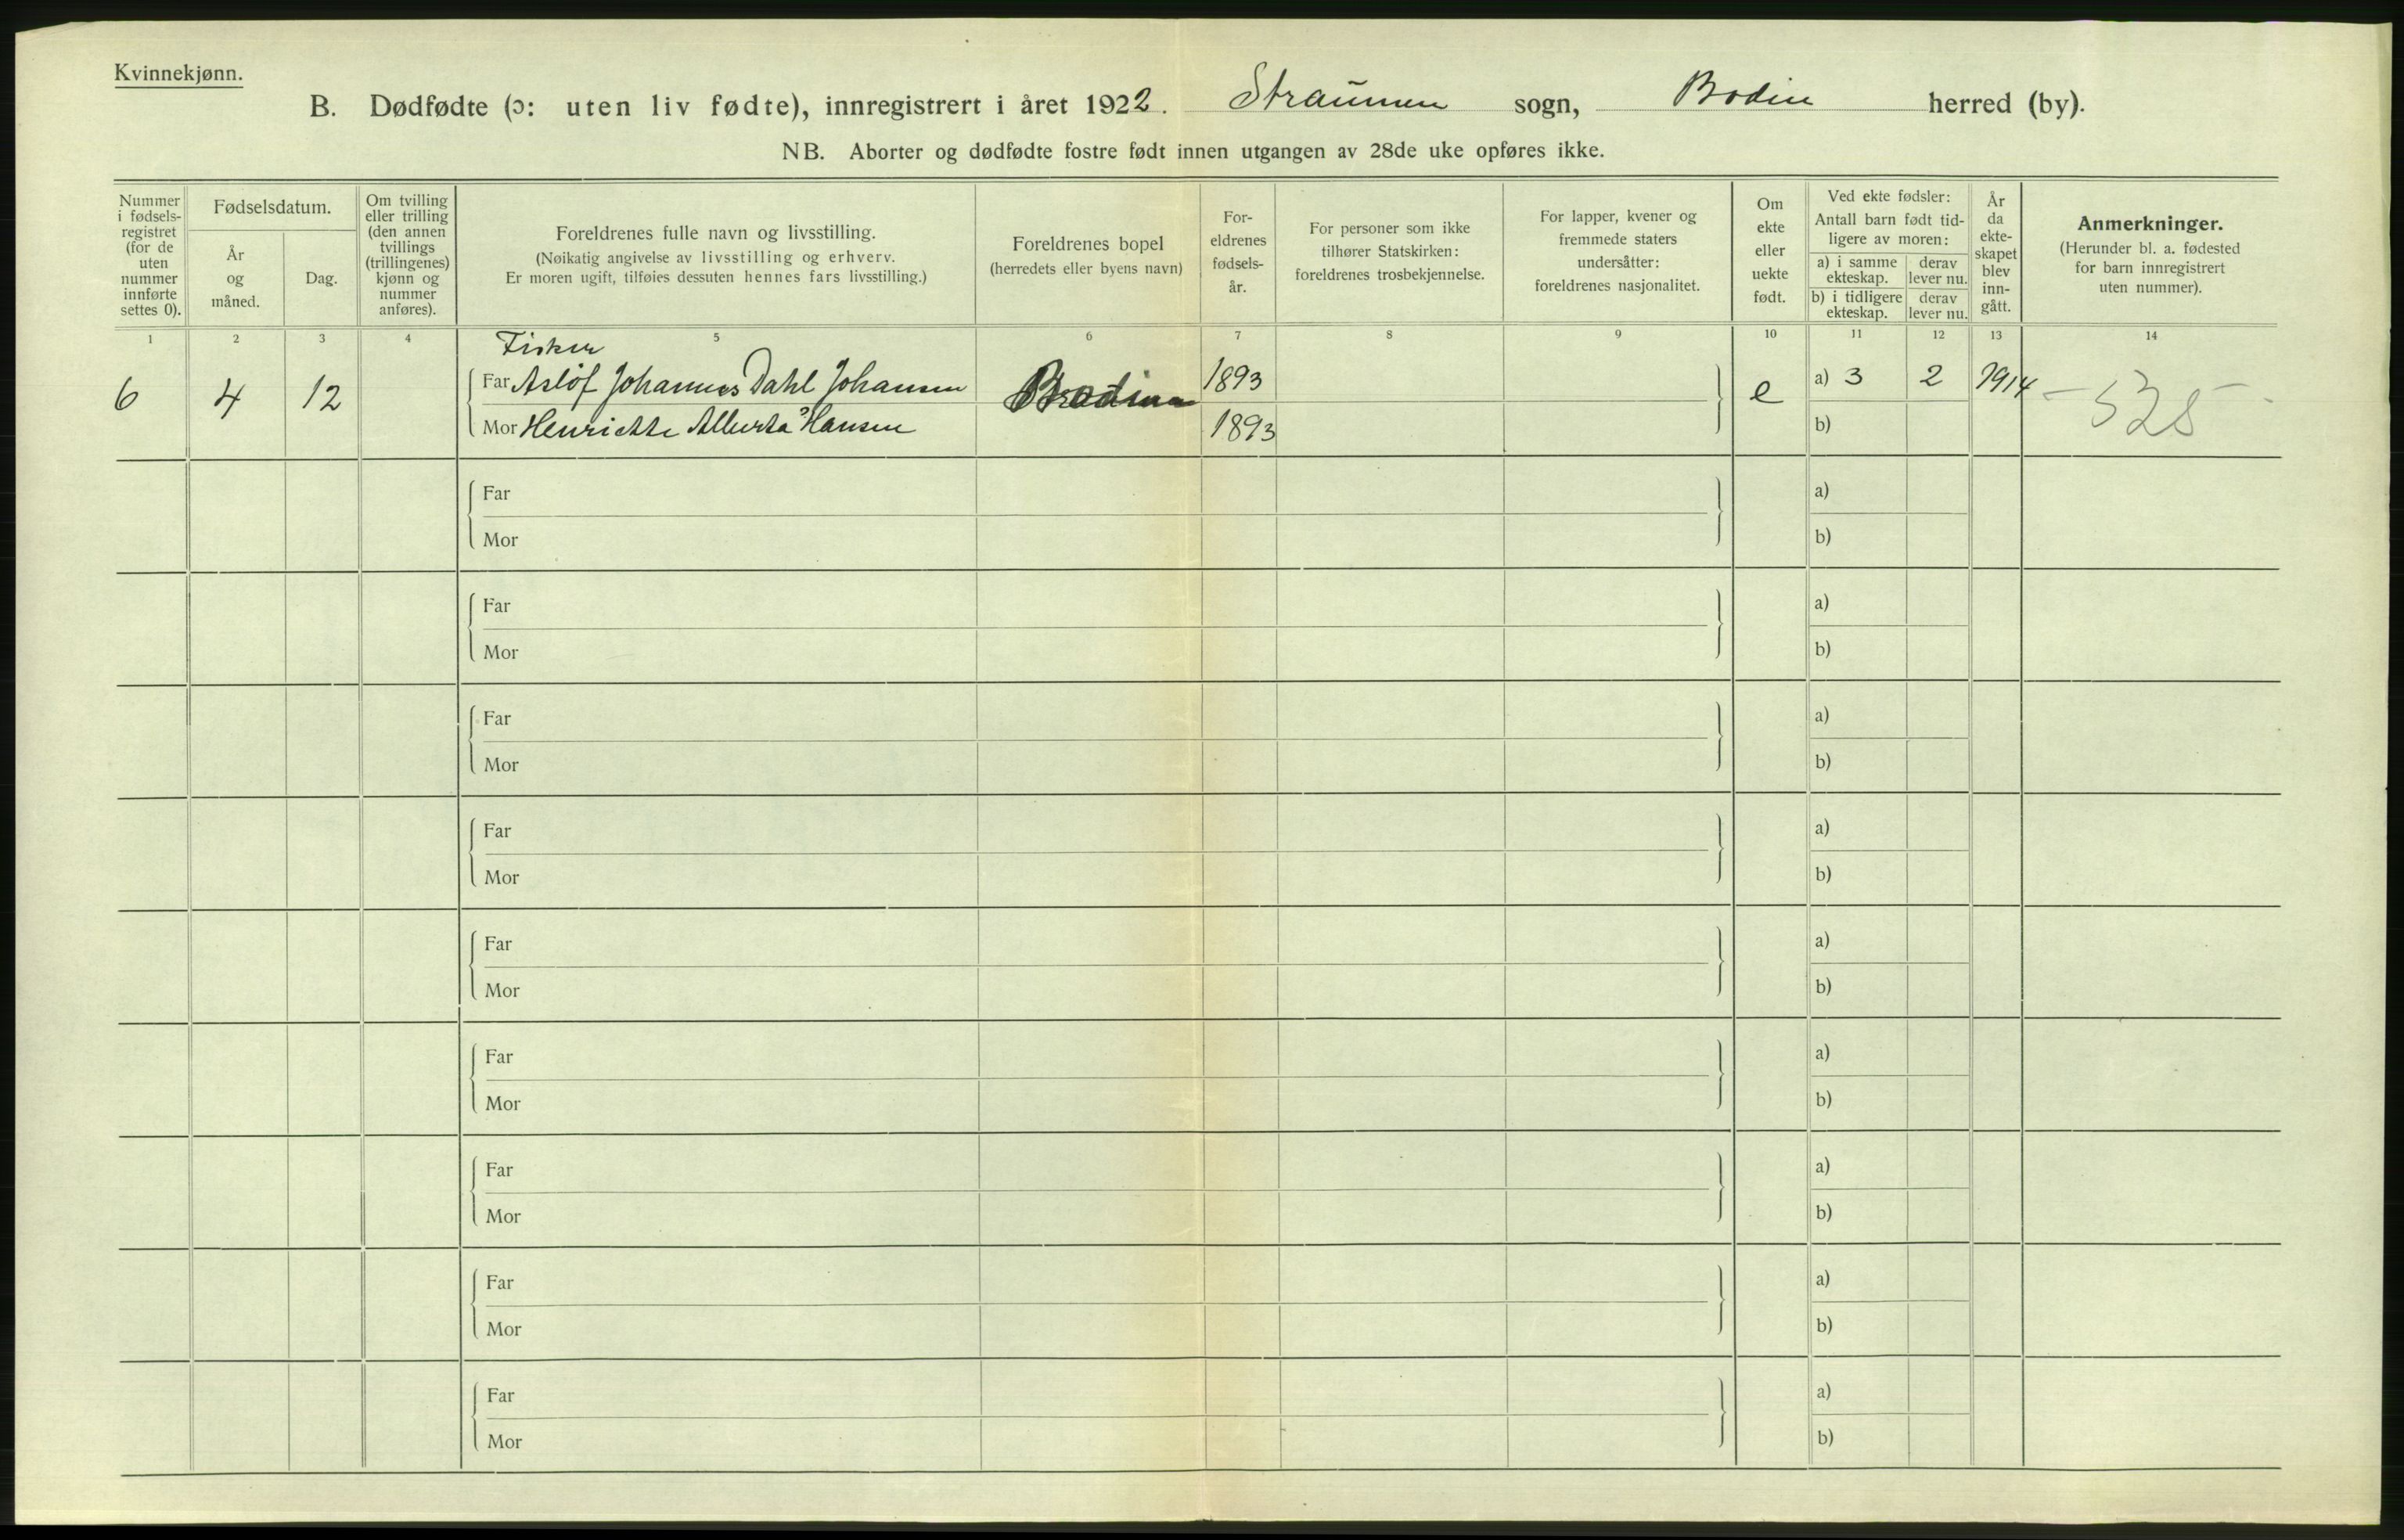 Kvinnekjønn.
B. Dødfødte (ɔ: uten liv fødte), innregistrert i året 1922. Straumen sogn, Bodin herred (by).
NB. Aborter og dødfødte fostre født innen utgangen av 28de uke opføres ikke.
Nummer
i fødsels-
registret
(for de
uten
nummer
innførte
settes 0).
Fødselsdatum.
År
og
måned.
Dag.
Om tvilling
eller trilling
(den annen
tvillings
(trillingenes)
kjønn og
nummer
anføres).
Foreldrenes fulle navn og livsstilling.
(Nøikatig angivelse av livsstilling og erhverv.
Er moren ugift, tilføies dessuten hennes fars livsstilling.)
Foreldrenes bopel
(herredets eller byens navn)
For-
eldrenes
fødsels-
år.
For personer som ikke
tilhører Statskirken:
foreldrenes trosbekjennelse.
For lapper, kvener og
fremmede staters
undersåtter:
foreldrenes nasjonalitet.
Om
ekte
eller
uekte
født.
Ved ekte fødsler:
Antall barn født tid-
ligere av moren:
a) i samme
ekteskap.
derav
lever nu.
b) i tidligere
ekteskap.
derav
lever nu.
År
da
ekte-
skapet
blev
inn-
gått.
Anmerkninger.
(Herunder bl. a. fødested
for barn innregistrert
uten nummer).
1 2 3 4 5 6 7 8 9 10 11 12 13 14
Fisker
6 4 12 Far Asløf Johannes Dahl Johansen Bodin 1893 e a) 3 2 1914 - 525 -
Mor Henriette Alberta Hansen 1893 b)
Far a)
Mor b)
Far a)
Mor b)
Far a)
Mor b)
Far a)
Mor b)
Far a)
Mor b)
Far a)
Mor b)
Far a)
Mor b)
Far a)
Mor b)
Far a)
Mor b)